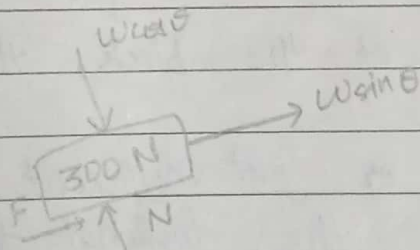 Wcosθ
Wsinθ
300 N
F
N